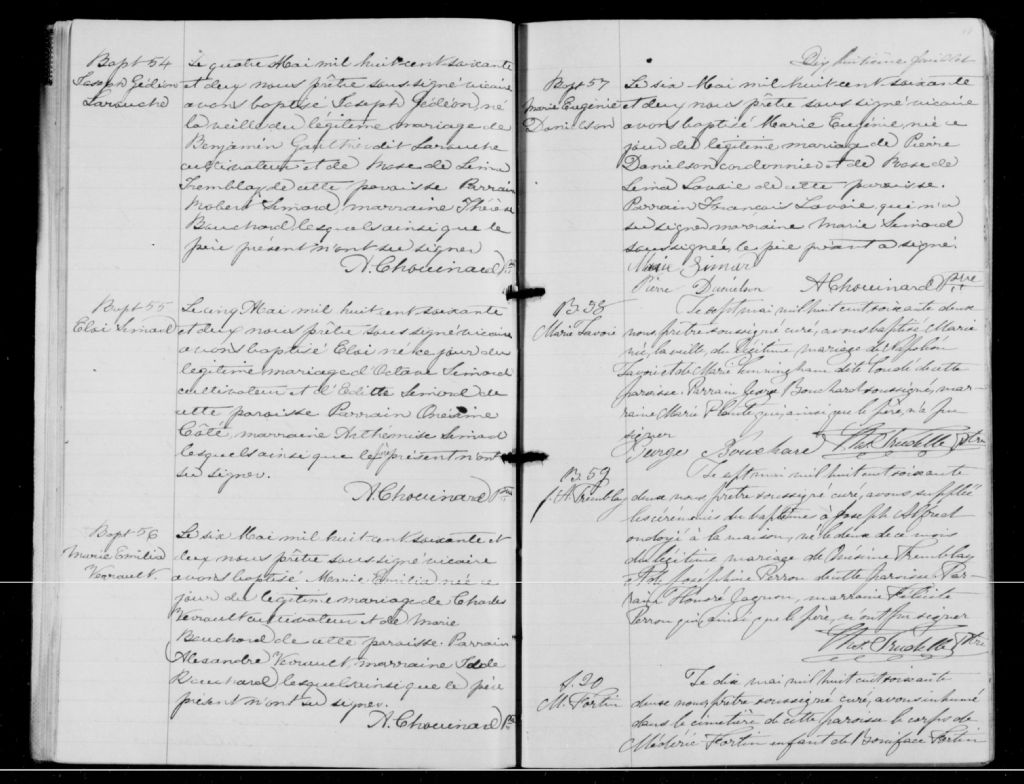 Bapt 54
Joseph Gédéon
Larouche
Le quatre Mai mil huit-cent-soixante
et deux nous prêtre sous-signé vicaire
avons baptisé Joseph Gédéon, né
la veille du légitime mariage de
Benjamin Gauthier dit Larouche
cultivateur et de Rose de Lima
Tremblay de cette paroisse Parrain
Robert Simard, marraine Thérèse
Bouchard lesquels ainsi que le
père présent n'ont su signer
A. Chouinard Ptre
Bapt 55
Eloi Simard
Le cinq Mai mil huit cent soixante
et deux nous prêtre sous signé vicaire
avons baptisé Eloi né ce jour du
légitime mariage d'Octave Simard
cultivateur et d'Edithe Simard de
cette paroisse Parrain Onésime
Côté, marraine Arthémise Simard
lesquels ainsi que le père présent n'ont
su signer.
A. Chouinard Ptre
Bapt 56
Marie Emilia
Verault.
Le six Mai mil huit cent soixante et
deux nous prêtre sous signé vicaire
avons baptisé Marie Emilia née ce
jour du légitime mariage de Charles
Verault cultivateur et de Marie
Bouchard de cette paroisse. Parrain
Alexandre Verault, marraine
Bouchard lesquels ainsi que le père
présent n'ont su signer.
A. Chouinard Ptre
Dix huitième feuillet
Bapt 57
Marie Eugénie
Danielson
Le six Mai mil huit cent soixante
et deux nous prêtre sous signé vicaire
avons baptisé Marie Eugénie, née ce
jour du légitime mariage de Pierre
Danielson cordonnier et de Rose de
Lima Lavoie de cette paroisse.
Parrain François Lavoie qui n'a
su signer marraine Marie Simard
soussignée, le père présent a signé.
Marie Simard
Pierre Danielson A Chouinard Ptre
B. 58
Marie Lavoie
Le sept mai mil huit cent soixante deux
nous prêtre soussigné curé, avons baptisé Marie
née, la veille, du légitime mariage de Napoléon
Lavoie et de Marie de cette
paroisse. Parrain George Bouchard soussigné, mar-
raine Marie Plante qui, ainsi que le père, n'a pu
signer
George Bouchard Ptre
B. 59
J. A Tremblay
Le sept mai mil huit cent soixante
deux nous prêtre soussigné curé, avons suppléé
les cérémonies du baptême à Joseph Alfred
ondoyé à la maison, né le deux de ce mois
du légitime mariage de Onésime Tremblay
et de Josephine Perron de cette paroisse. Par-
rain Honoré Gagnon, marraine Félicité
Perron qui, ainsi que le père, n'ont pu signer
Ptre
S. 20
M. Fortin
Le dix mai mil huit cent soixante
deux nous prêtre soussigné curé, avons inhumé
dans le cimetière de cette paroisse le corps de
Médéric Fortin enfant de Boniface Fortin